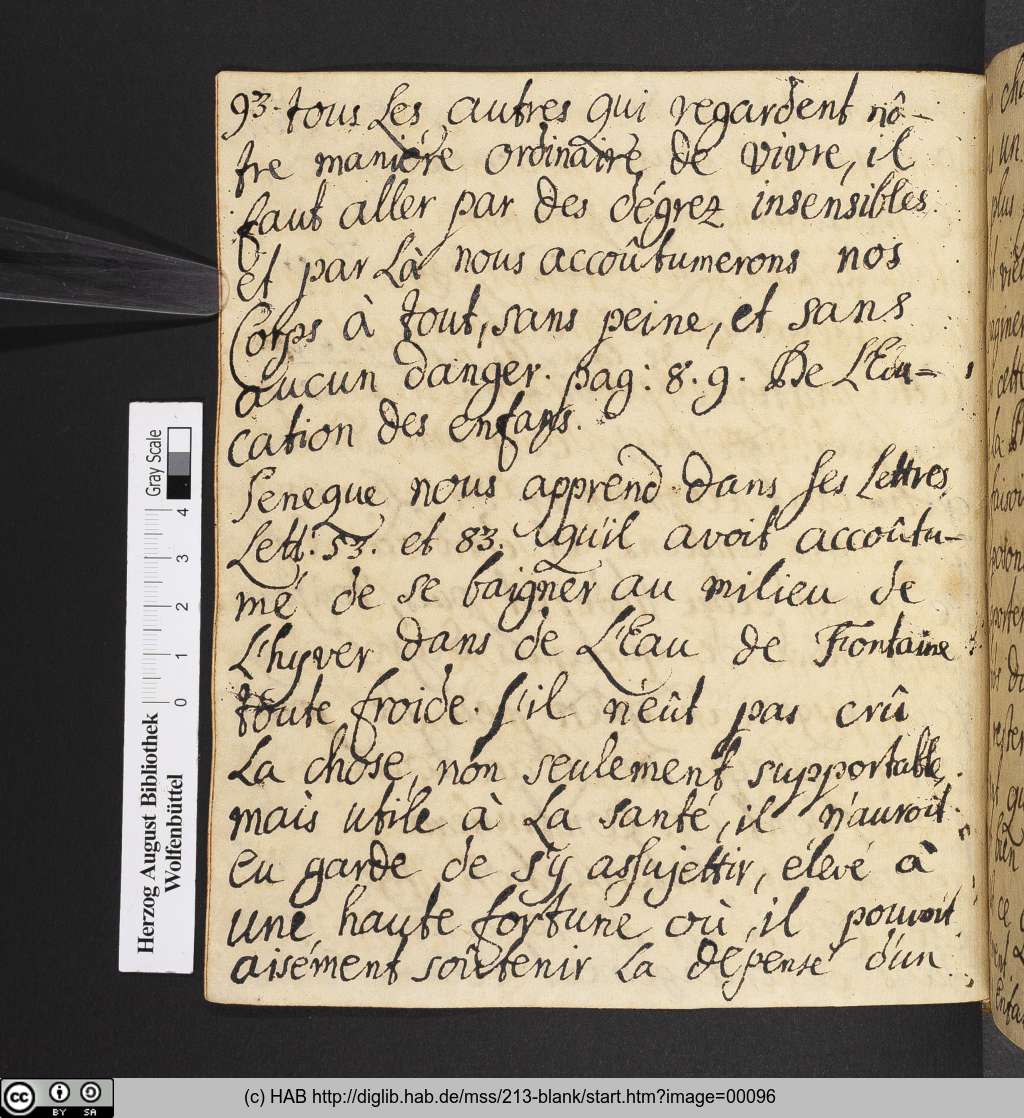 93. tous Les autres qui regardent nô-
tre maniére ordinaire de vivre, il
faut aller par des dégrez insensibles
et par Là nous accoûtumerons nos
Corps à tout, sans peine, et sans
aucun danger. pag: 8. 9. De L'Edu=
cation des enfans.
Seneque nous apprend dans ses Lettres,
Lett: 53. et 83. qu'il avoit accoûtu-
mé de se baigner au milieu de
L'hyver dans de L'Eau de Fontaine
toute froide. S'il n'eût pas crû
La chose, non seulement supportable,
mais utile à La santé, il n'auroit
eu garde de s'y assujettir, élevé à
une haute fortune où il pouvoit
aisément soûtenir La dépense d'un
Gray Scale
4
3
2
1
0
Herzog August Bibliothek
Wolfenbüttel
cc BY SA
(c) HAB http://diglib.hab.de/mss/213-blank/start.htm?image=00096